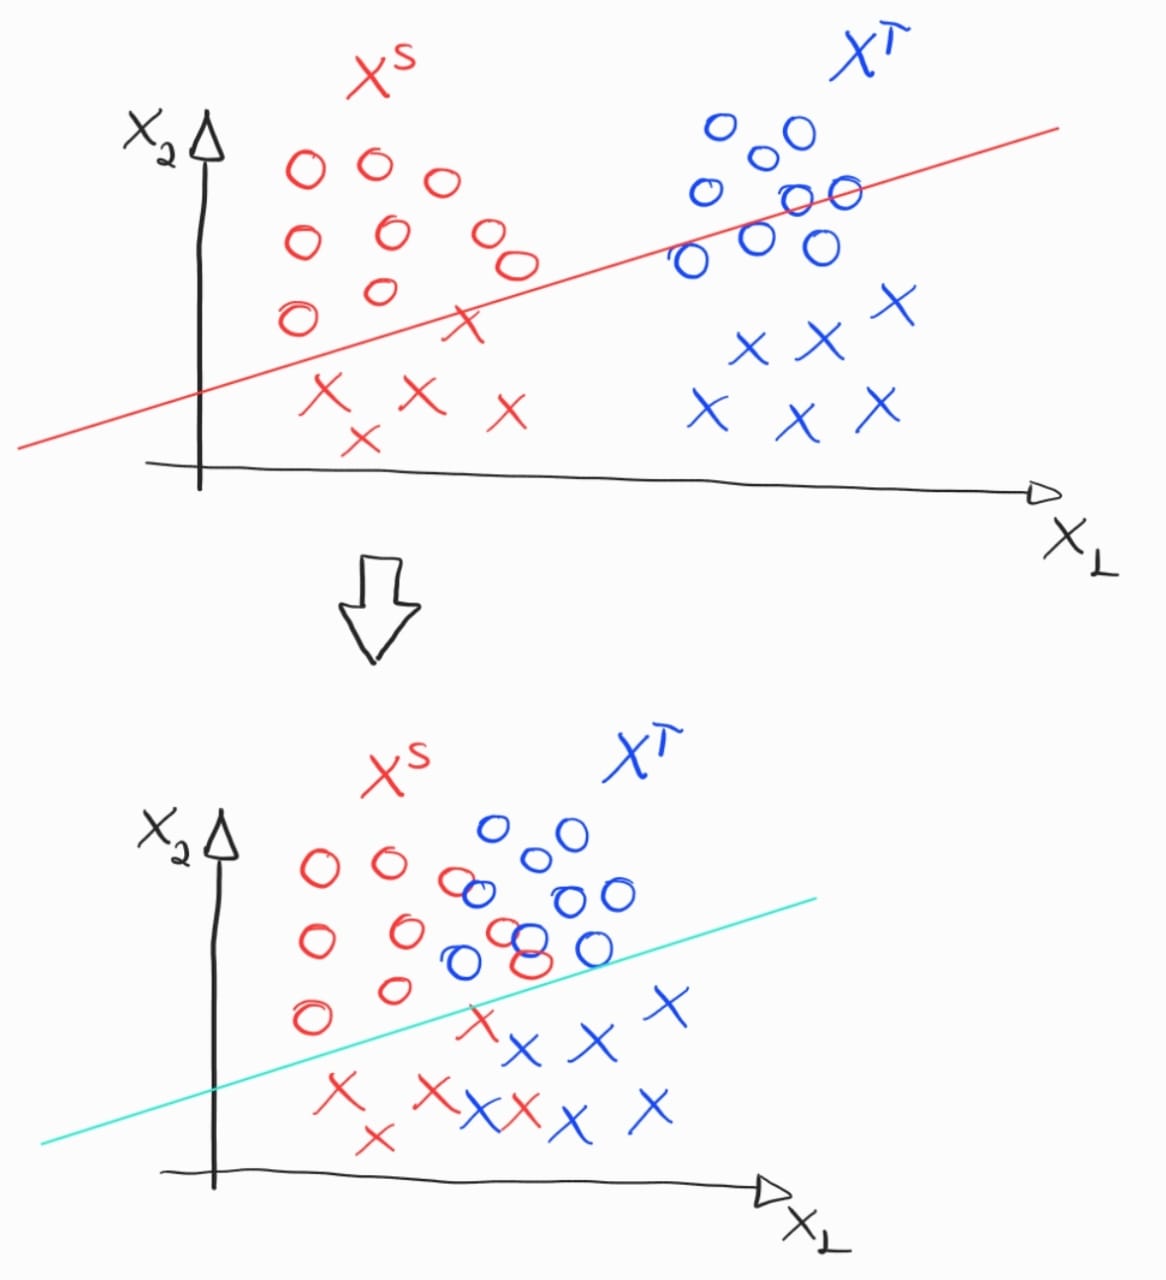 X^S
X^T
X_2
X_1
X^S
X^T
X_2
X_1